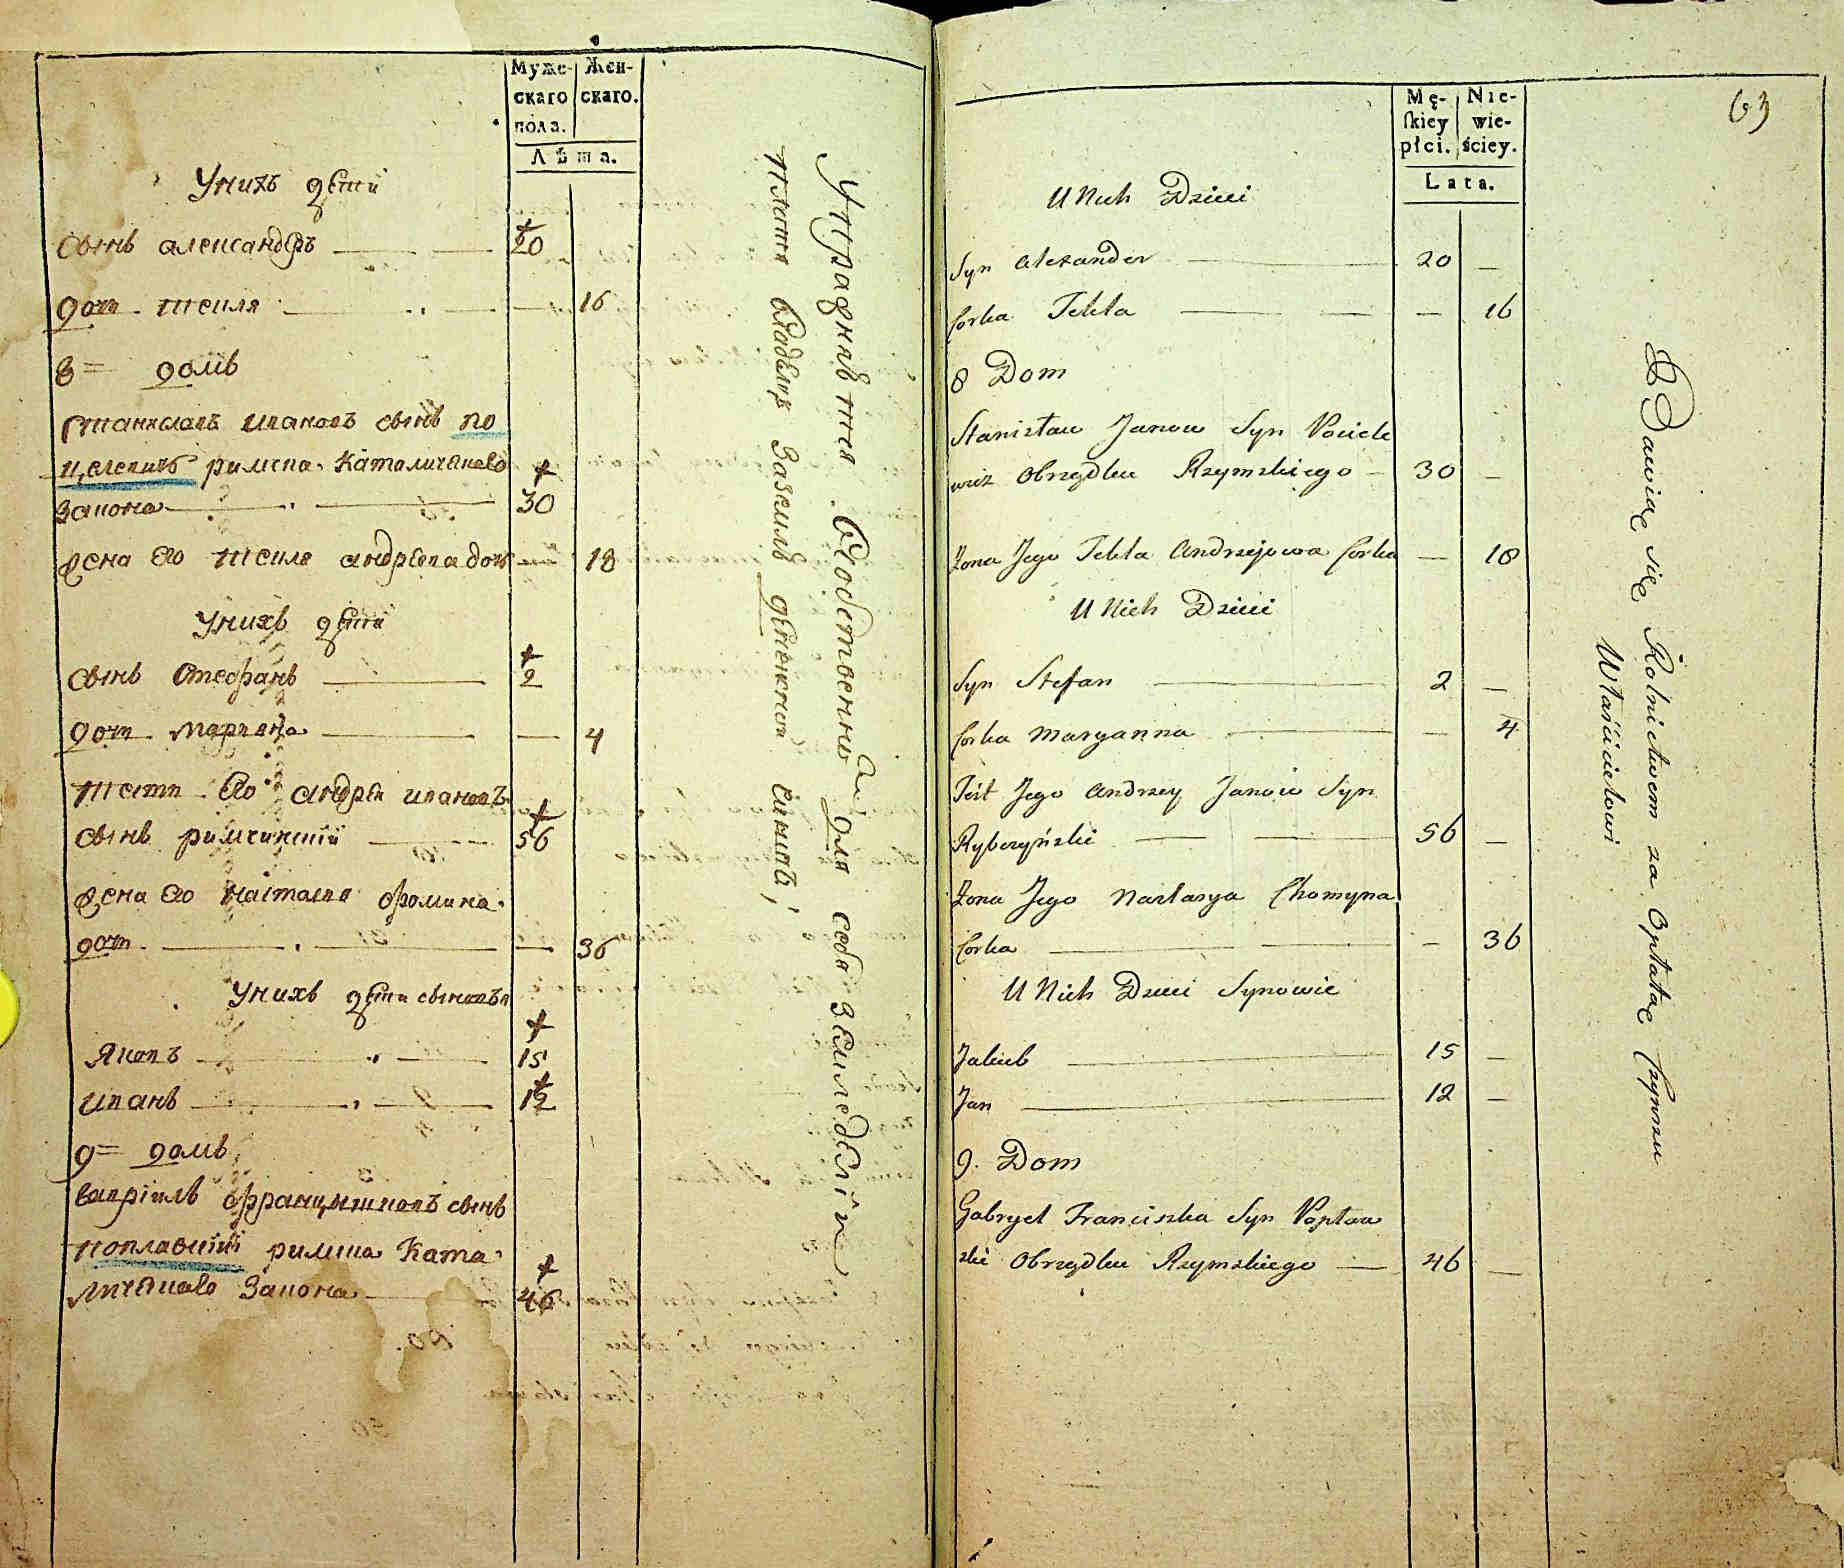 Муже-
скаго
пола.
Жен-
скаго.
Лѣта.
Унихъ дѣти
Сынъ александръ 20
доч. текля 16
8 = домъ
Станиславъ ивановъ сынъ по
цѣлевичъ римска. Католическаго
закона 30
жена его текля андрѣева доч 18
Унихъ дѣти
сынъ Стефанъ 2
доч. Марiана 4
тестъ его андрѣй ивановъ
сынъ рипчинскiй 56
жена его настасiя фомина
доч. 36
Унихъ дѣти сыновья
Яковъ 15
иванъ 12
9 = домъ
Гаврiилъ францишковъ сынъ
поплавскiй римска Като
лическаго закона 46
Упражняется въ собственнию для себя земледѣлiи
платя владѣлцу за землю денежной чиншъ,
63
Mę-
skiey
płci.
Nie-
wie-
ściey.
Lata.
U Nich Dzieci
Syn Alexander 20 —
Corka Tekla — 16
8 Dom
Stanisław Janow Syn Pociele
wicz Obrządku Rzymskiego 30 —
Żona Jego Tekla Andrzejowa Corka — 18
U Nich Dzieci
Syn Stefan 2 —
Corka Maryanna — 4
Teść Jego Andrzey Janow Syn
Rybczyński 56 —
Żona Jego Nastasya Chomyna
Corka — 36
U Nich Dzieci Synowie
Jakub 15 —
Jan 12 —
9. Dom
Gabryel Franciszka Syn Popław
ski Obrządku Rzymskiego 46 —
Bawiąc się Rolnictwem za Opłatą Czynszu
Właścicielowi